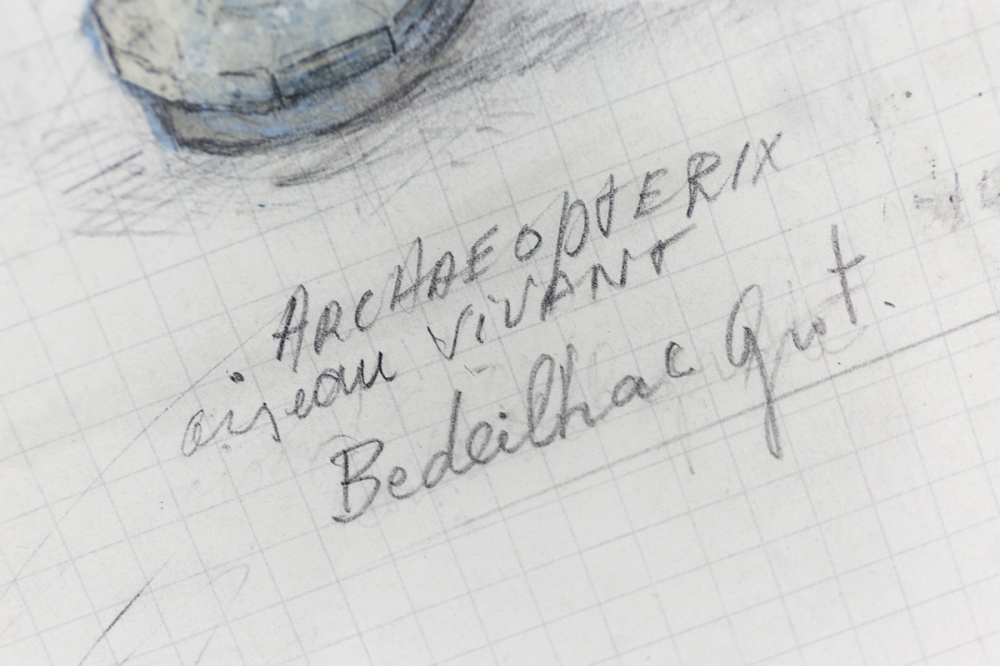 ARCHAEOPTERIX
oiseau ViVANT
Bedeilhac Grot.